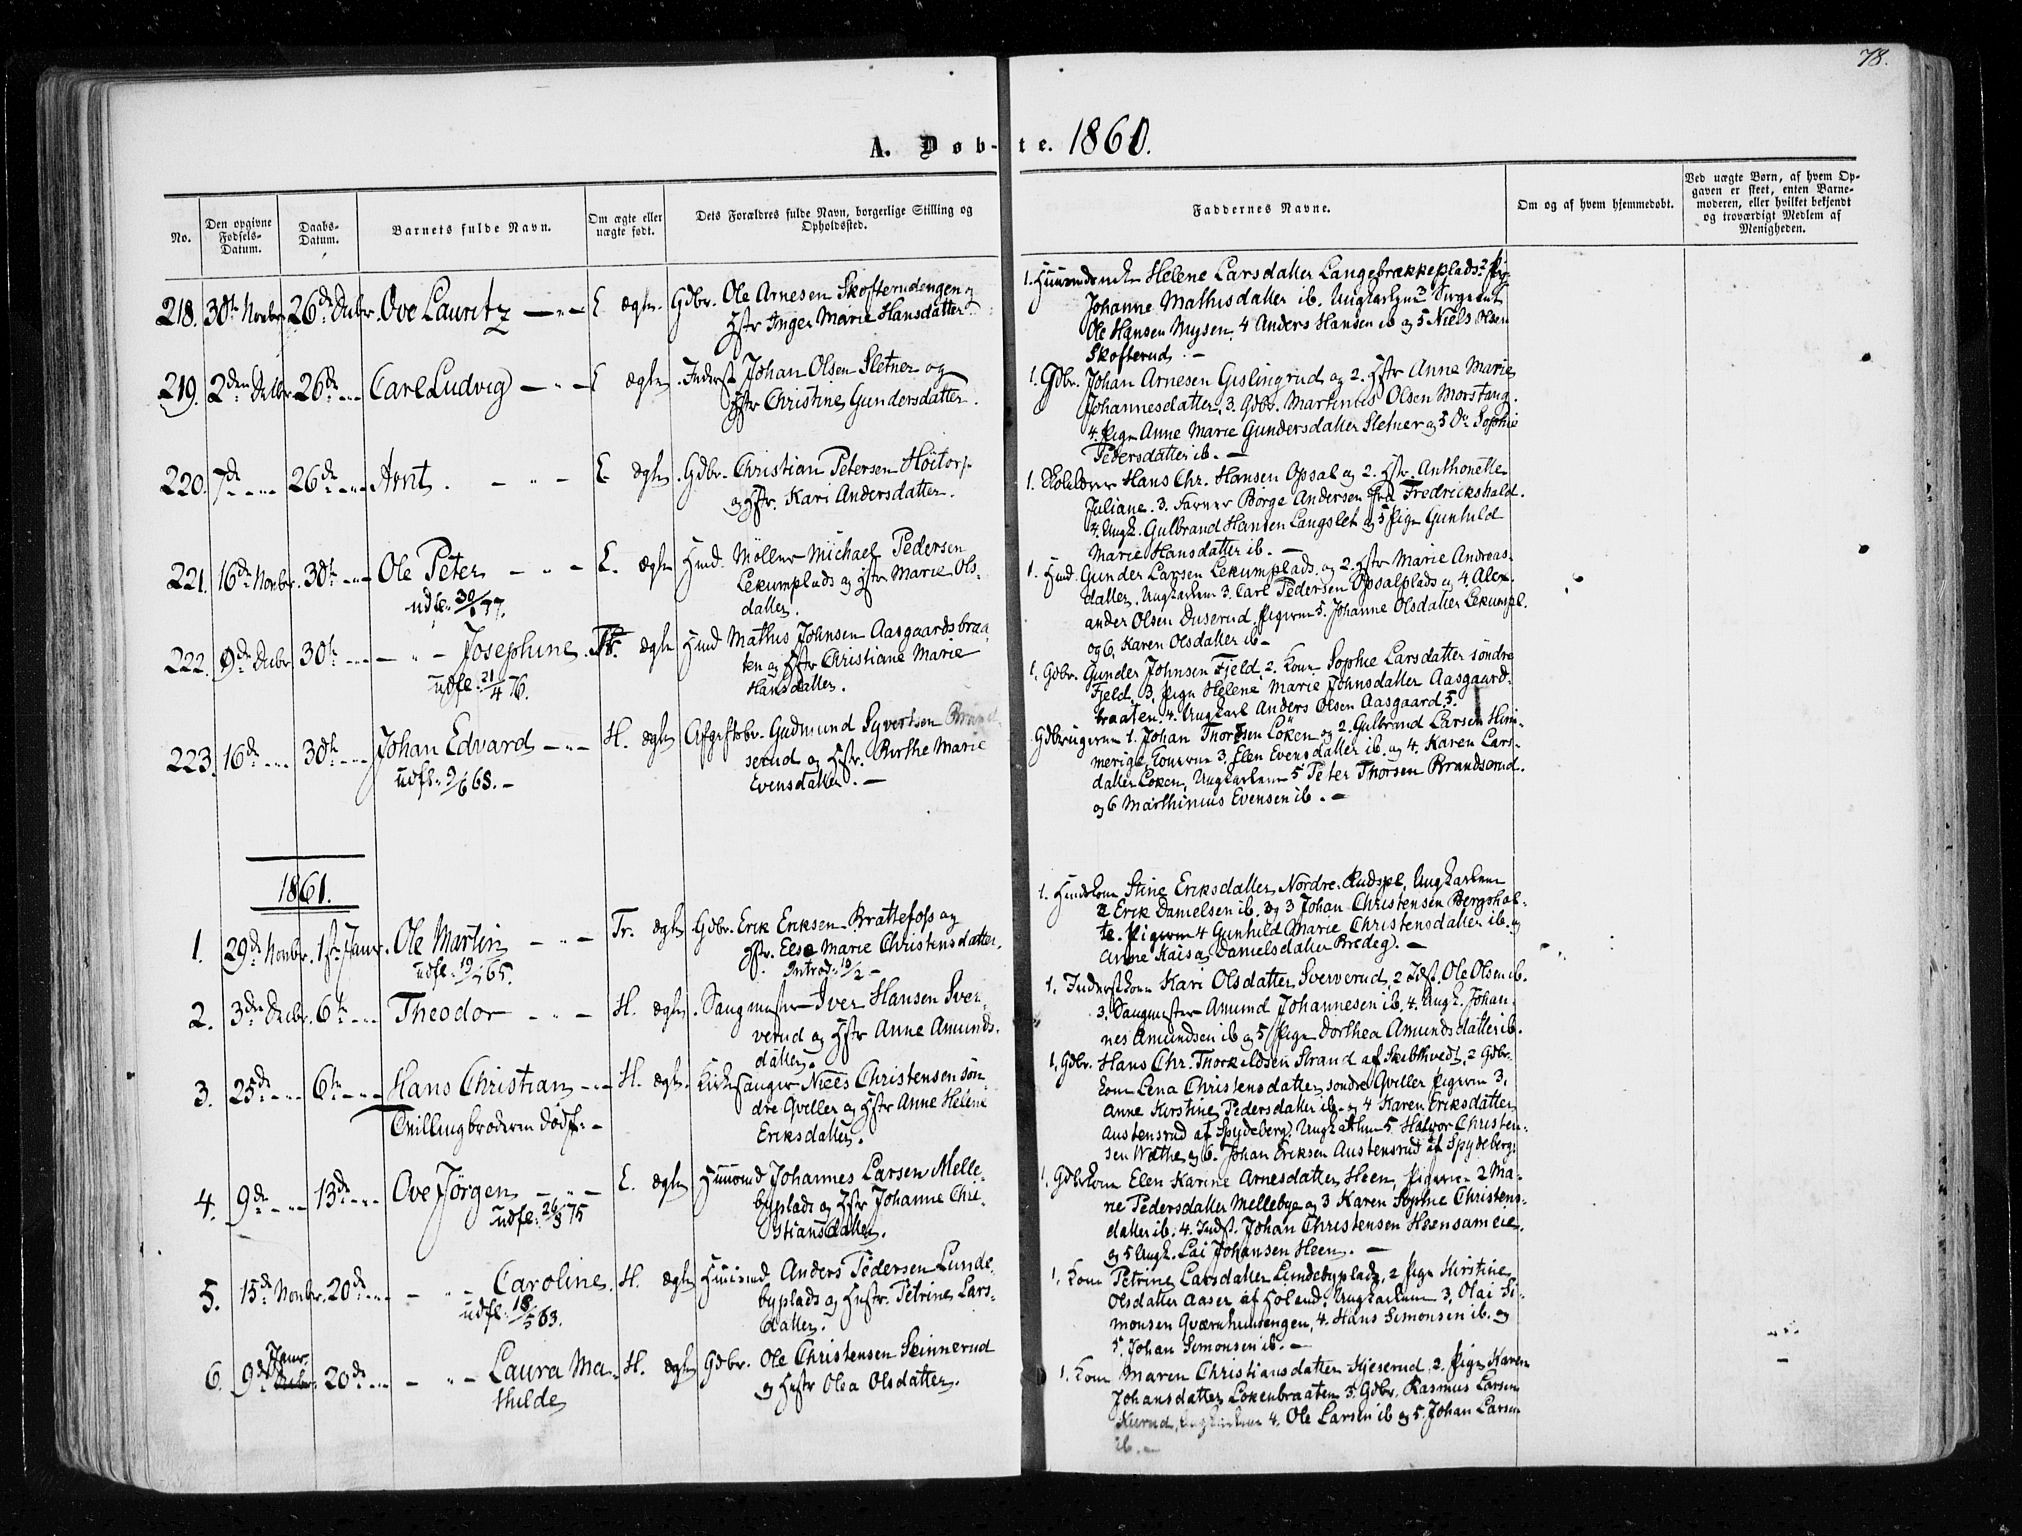 78.
A. Døb-te. 1860.
No.
Den opgivne Fødsels-Datum.
Daabs-Datum.
Barnets fulde Navn.
Om ægte eller uægte født.
Dets Forældres fulde Navn, borgerlige Stilling og Opholdssted.
Faddernes Navne.
Om og af hvem hjemmedøbt.
Ved uægte Børn, af hvem Opgaven er skeet, enten Barnemoderen, eller hvilket bekjendt og troværdigt Medlem af Menigheden.
218. 30te Novbr. 26de Decbr. Ove Lauritz — " — E. ægte. Gdbr. Ole Arnesen Skofterudengen og
Hstr Inger Marie Hansdatter.
1. Helene Larsdatter Langebrækkeplads 2 Pig.
Johanne Mathisdatter ib. Ungkarlene 3 Sergeant
Ole Hansen Mysen, 4 Anders Hansen ib og 5 Niels Olsen
Skofterud. —
219. 2den Decbr. 26de " Carl Ludvig — " — E ægte. Inderst Johan Olsen Sletner og
Hstr Christine Gundersdatter.
1. Gdbr. Johan Arnesen Gislingrud og 2. Hstr Anne Marie
Johannesdatter, 3. Gdbr. Martinius Olsen Morstang.
4. Pige Anne Marie Gundersdatter Sletner og 5 Do Sophie
Pedersdatter ib. —
220. 7de " 26de " Arnt. — " — E. ægte. Gdbr. Christian Petersen Höitorp
og Hstr. Kari Andersdatter.
1. Skolelærer Hans Chr. Hansen Opsal og 2. Hstr. Anthonette
Juliane. 3. Farver Borge Andersen fra Fredrickshald.
4. Ungk. Gulbrand Hansen Langslet og 5 Pige Gunhild
Marie Hansdatter ib. —
221. 16de Novbr. 30te " Ole Peter — " — E. ægte Hmd. Möller Michael Pedersen
Lekumplads og Hstr Marie Ols-
datter.
udfl. 30/1 77.
1. Hmd. Gunder Larsen Lekumplads. og 2. Hstr Marie Andreas-
datter. Ungkarlene 3. Carl Pedersen Opsalplads og 4. Alex-
ander Olsen Duserud. Pigerne 5. Johanne Olsdatter Lekumpl.
og 6. Karen Olsdatter ib —
222. 9de Decbr 30te " — " — Josephine. Tr. ægte Hmd Mathis Johnsen Aasgaardsbraa-
ten og Hstr Christiane Marie
Hansdatter.
udfl. 21/4 76.
1. Gdbr. Gunder Johnsen Fjeld, 2. Kone Sophie Larsdatter söndre
Fjeld, 3. Pige Helene Marie Johnsdatter Aasgaard-
braaten. 4. Ungkarl Anders Olsen Aasgaard 5.
223. 16de " 30te " Johan Edvard — " — H. ægte Afgiftsbr. Gudmund Syvertsen Brand-
serud og Hstr. Berthe Marie
Evensdatter. —
udfl. 9/6 68. —
Gdbrugerne 1. Johan Thoresen Löken og 2. Gulbrand Larsen Him-
merig, Konerne 3. Elen Evensdatter ib. og 4. Karen Lars-
datter Loken, Ungkarlene 5 Peter Thorsen Brandserud.
og 6 Marthinius Evensen ib. —
1861.
1. 29de Novbr. 1ste Janr. Ole Martin — " — Tr. ægte Gdbr. Erik Eriksen Brattefoss og
Hstr. Else Marie Christensdatter.
Introd. 10/2 —
1. Huusmdskone Stine Eriksdatter Nordre Rudspl, Ungkarlene
2 Erik Danielsen ib. og 3 Johan Christensen Bergshol-
te. Pigerne 4 Gunhild Marie Christensdatter ib. og
Anne Kaisa Danielsdatter Bredeg. —
2. 3die Decbr. 6te " Theodor — " — H. ægte. Sangmester Iver Hansen Sver-
verud og Hstr Anne Amunds-
datter.
1. Inderstkone Kari Olsdatter Sververud, 2 Idst. Ole Olsen ib.
3. Sangmester Amund Johannesen ib. 4. Ungk. Johan-
nes Amundsen ib og 5 Pige Dorthea Amundsdatter ib.
3. 25de " 6te " Hans Christian — " — H. ægte. Kirkesanger Niels Christensen søn-
dre Qviller og Hstr Anne Helene
Eriksdatter.
Tvillingbroderen dødf. —
1. Gdbr. Hans Chr. Thorkildsen Strand af Skibthvedt, 2 Gdbr-
kone Lena Christensdatter søndre Qviller Pigerne 3.
Anne Kirstine Pedersdatter ib. og 4 Karen Eriksdatter
Austensrud af Spydeberg. Ungkarlene 5 Halvor Christen-
sen Wathe og 6. Johan Eriksen Austensrud af Spydeberg.
4. 9de " 13de " Ove Jørgen — " — E. ægte Huusmd Johannes Larsen Melle-
byplads og Hstr Johanne Chri-
stiansdatter.
udfl. 26/3 75
1. Gdbrkone Elen Karine Arnesdatter Heen, Pigerne 2 Ma-
rie Pedersdatter Mellebye og 3 Karen Sophie Christens-
datter ib. 4. Indst. Johan Christensen Heensameie.
og 5 Ungk. Lai Johansen Heen. —
5. 15de Novbr. 20de " — " — Caroline. H. ægte Huusmd Anders Pedersen Lunde-
byplads og Hustr. Petrine Lars-
datter.
udfl. 18/5 63.
1. Kone Petrine Larsdatter Lundebyplads, 2 Pige Kirstine
Olsdatter Aaser af Holand. Ungkarlene 3. Olai Si-
monsen Qværnhusengen, 4. Hans Simonsen ib. og
5. Johan Simonsen ib. —
6. 9de Janr. 20de " — " — Laura Ma- H. ægte Gdbr. Ole Christensen Skinnerud
thilde
og Hustr Olea Olsdatter.
1. Kone Maren Christiansdatter Hjeserud, 2. Pige Karen
Johansdatter Lokenbraaten 3. Gdbr. Rasmus Larsen
Kurud, Ungkarlene 4. Ole Larsen ib og 5. Johan Larsen
ib. —